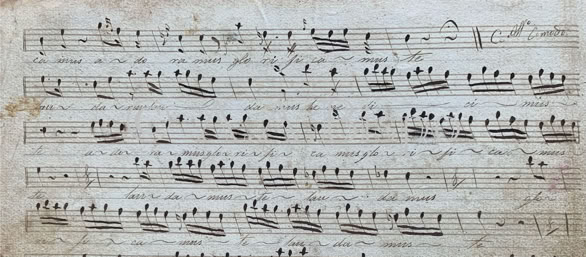 ca mus a do ra mus glo ri fi ca mus te
C. All.º Comodo
lau da mus be ne di ci mus
a do ra mus glo ri fi ca mus glo ri fi ca mus
te lau da mus te lau da mus glo
ri fi ca mus te lau da mus te